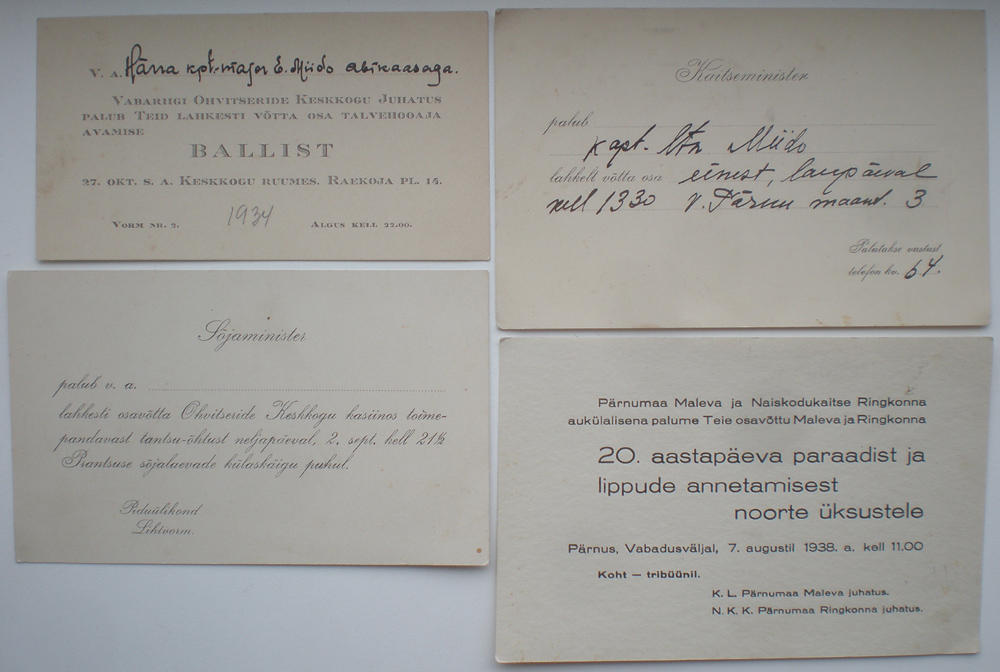 V. A. Härra kpt.-major E. Miido abikaasaga.
Vabariigi Ohvitseride Keskkogu Juhatus
palub Teid lahkesti võtta osa talvehooaja
avamise
BALLIST
27. okt. s. a. Keskkogu ruumes. Raekoja pl. 14.
1934
Vorm nr. 2. Algus kell 22.00.
Kaitseminister
palub
kapt. ltn Miido
lahkelt võtta osa einest, laupäeval
kell 1330 V. Pärnu maant. 3
Palutakse vastust
telefon kv. 64.
Sõjaminister
palub v. a.
lahkesti osavõtta Ohvitseride Keskkogu kasiinos toime-
pandavast tantsu-õhtust neljapäeval, 2. sept. kell 21½
Prantsuse sõjalaevade külaskäigu puhul.
Piduülikond
Lihtvorm.
Pärnumaa Maleva ja Naiskodukaitse Ringkonna
aukülalisena palume Teie osavõttu Maleva ja Ringkonna
20. aastapäeva paraadist ja
lippude annetamisest
noorte üksustele
Pärnus, Vabadusväljal, 7. augustil 1938. a. kell 11.00
Koht — tribüünil.
K. L. Pärnumaa Maleva juhatus.
N. K. K. Pärnumaa Ringkonna juhatus.